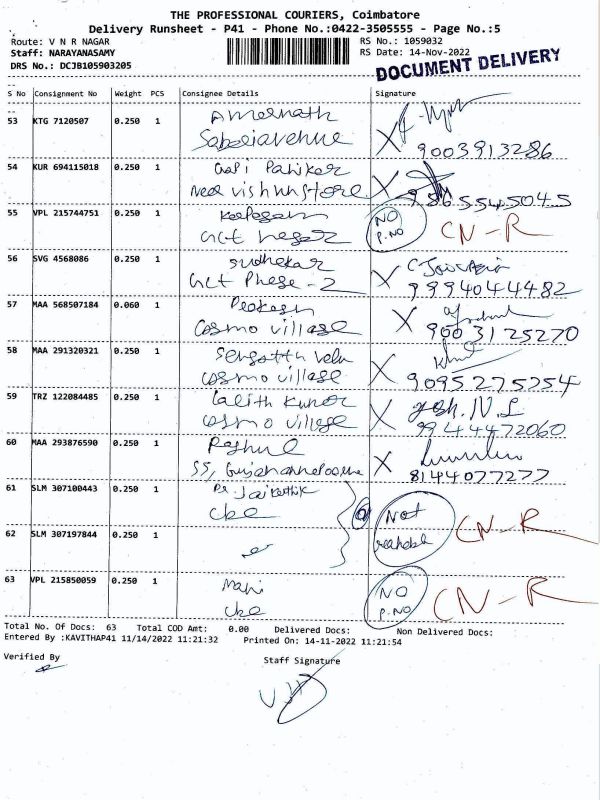 THE PROFESSIONAL COURIERS, Coimbatore
Delivery Runsheet - P41 - Phone No.:0422-3505555 - Page No.:5
Route: V N R NAGAR RS No.: 1059032
Staff: NARAYANASAMY RS Date: 14-Nov-2022
DRS No.: DCJB105903205 DOCUMENT DELIVERY
S No Consignment No Weight PCS Consignee Details Signature
53 KTG 7120507 0.250 1 Amernath
9003913286
54 KUR 694115018 0.250 1 Gopi Panikar
Near vishnu store 9865545045
55 VPL 215744751 0.250 1 NO
GCT nagar P.NO CN-R
56 SVG 4568086 0.250 1 Sudhekar
GCT Phase-2 9994044482
57 MAA 568507184 0.060 1 Prakash
Cosmo village 9003125270
58 MAA 291320321 0.250 1 Sengottu Velu
Cosmo village 9095275254
59 TRZ 122084485 0.250 1 Lalith Kumar
Cosmo village 9944472060
60 MAA 293876590 0.250 1 Raghul
55, 8144077277
61 SLM 307100443 0.250 1 Dr. Jaikarthik
cbe Not
62 SLM 307197844 0.250 1 reachable CN-R
63 VPL 215850059 0.250 1 Mani NO
cbe P.NO CN-R
Total No. Of Docs: 63 Total COD Amt: 0.00 Delivered Docs: Non Delivered Docs:
Entered By :KAVITHAP41 11/14/2022 11:21:32 Printed On: 14-11-2022 11:21:54
Verified By Staff Signature